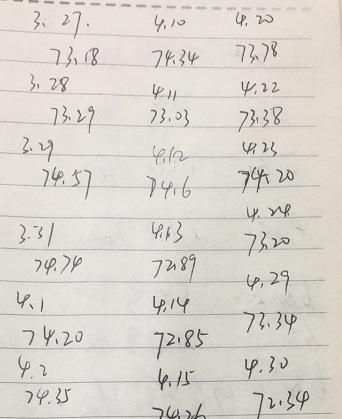 3.27.
73.18
3.28
73.29
3.29
74.57
3.31
74.74
4.1
74.20
4.2
74.35
4.10
74.34
4.11
73.03
4.12
74.6
4.13
72.89
4.14
72.85
4.15
74.26
4.20
73.78
4.22
73.38
4.23
74.20
4.24
73.20
4.29
73.34
4.30
72.34